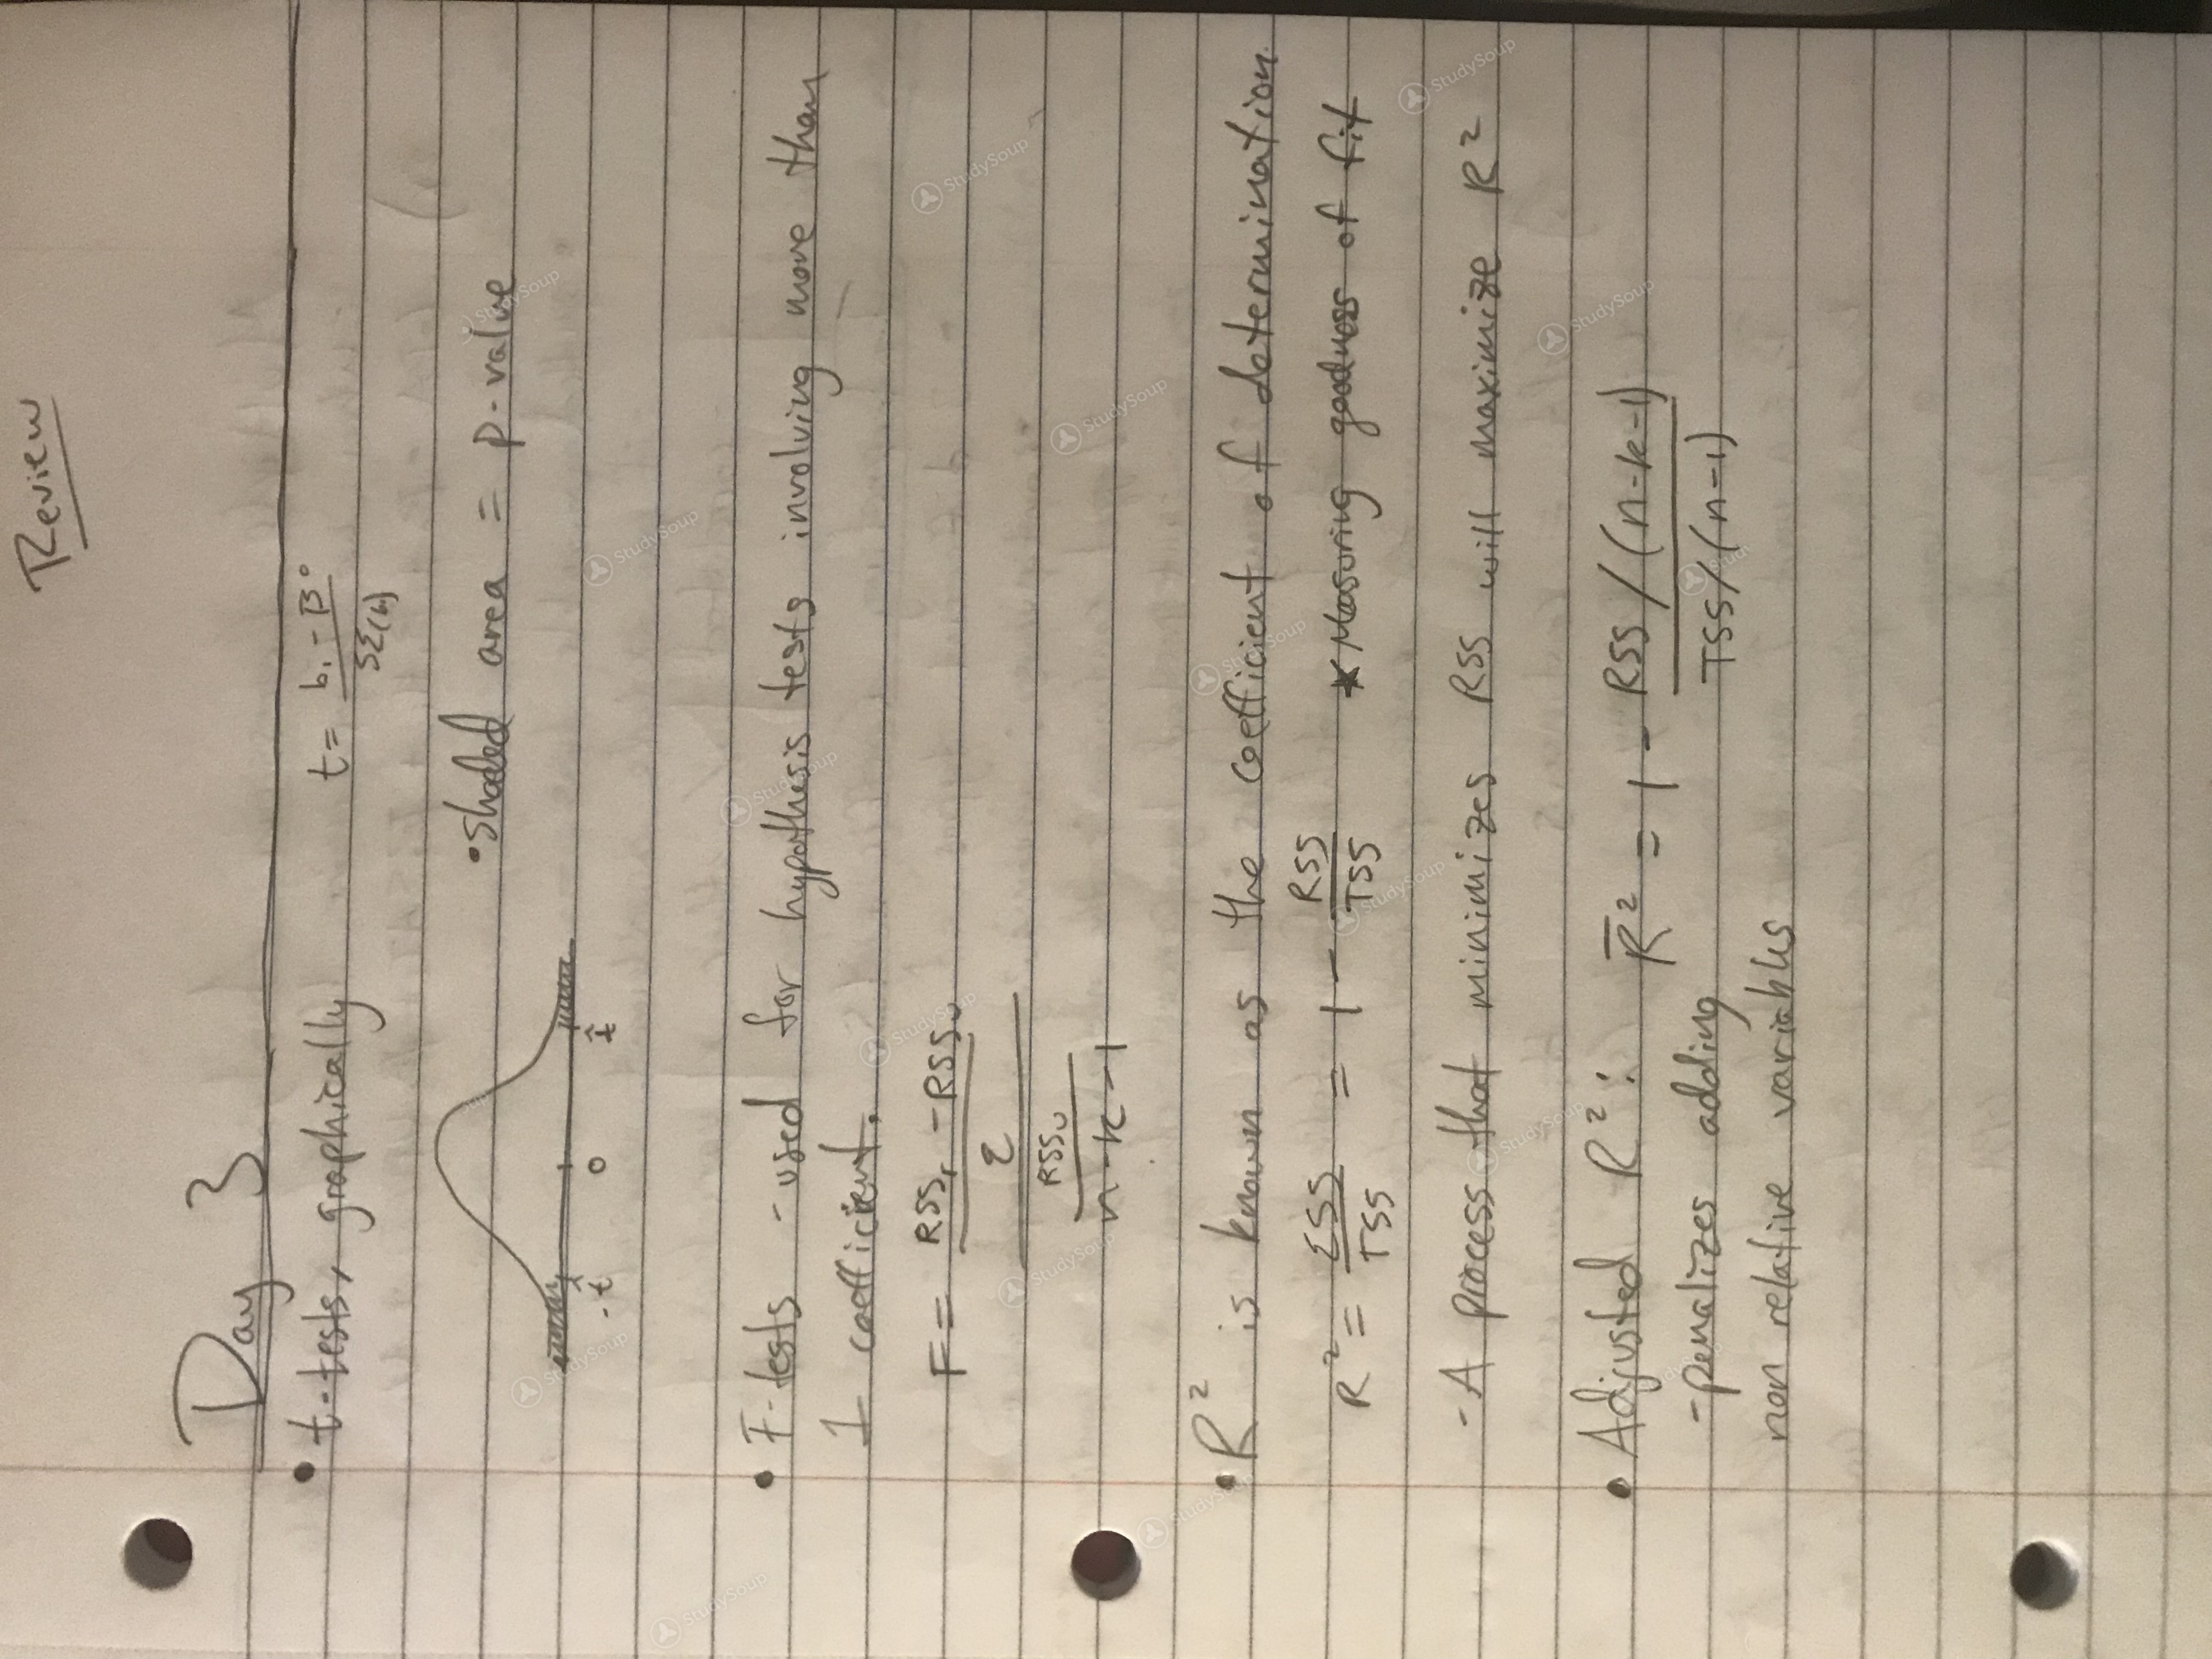 Review
Day 3
• t-tests, graphically t = b₁ - β° / SE(b₁)
• shaded area = p-value
-t̂ 0 t̂
• F-tests - used for hypothesis tests involving more than
1 coefficient.
F = RSSr - RSSu / q
RSSu / n-k-1
• R² is known as the coefficient of determination.
R² = ESS / TSS = 1 - RSS / TSS * Measuring goodness of fit
- A process that minimizes RSS will maximize R²
• Adjusted R²: R̄² = 1 - RSS/(n-k-1) / TSS/(n-1)
- penalizes adding
non relative variables
StudySoup